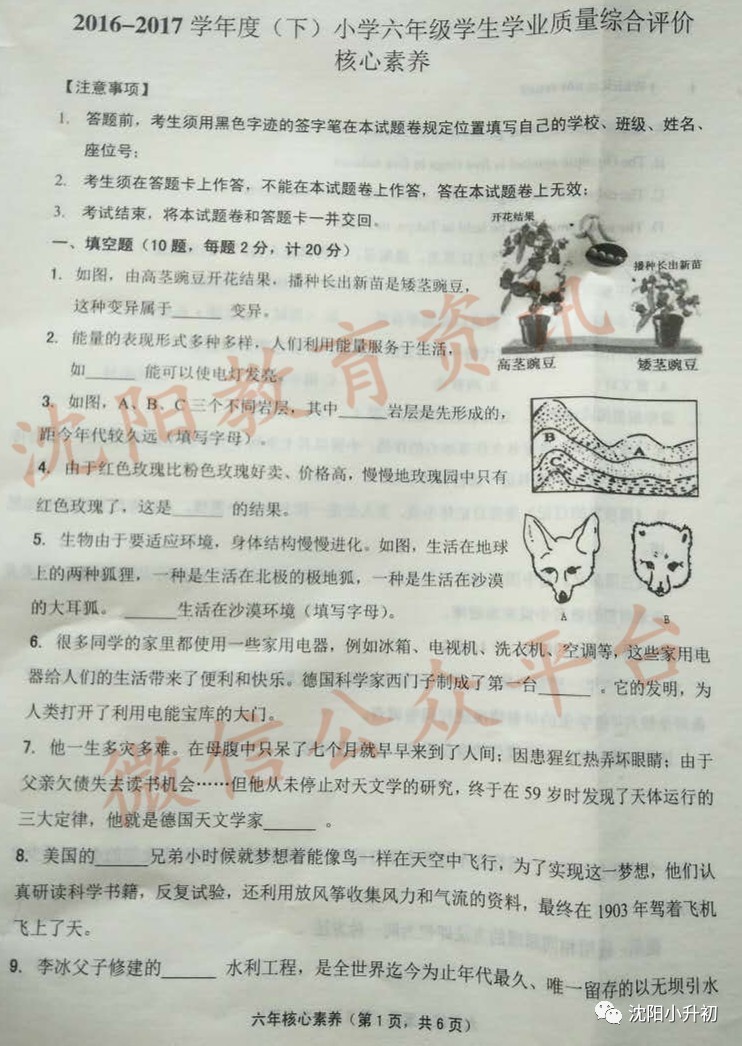 2016-2017 学年度（下）小学六年级学生学业质量综合评价
核心素养
【注意事项】
1. 答题前，考生须用黑色字迹的签字笔在本试题卷规定位置填写自己的学校、班级、姓名、
座位号；
2. 考生须在答题卡上作答，不能在本试题卷上作答，答在本试题卷上无效；
3. 考试结束，将本试题卷和答题卡一并交回。
一、填空题（10题，每题2分，计20分）
开花结果
播种长出新苗
高茎豌豆
矮茎豌豆
1. 如图，由高茎豌豆开花结果，播种长出新苗是矮茎豌豆，
这种变异属于______ 变异，
2. 能量的表现形式多种多样，人们利用能量服务于生活，
如______ 能可以使电灯发亮。
3. 如图，A、B、C 三个不同岩层，其中______岩层是先形成的，
距今年代较久远（填写字母）。
B
A
C
4. 由于红色玫瑰比粉色玫瑰好卖、价格高，慢慢地玫瑰园中只有
红色玫瑰了，这是______ 的结果。
5. 生物由于要适应环境，身体结构慢慢进化。如图，生活在地球
上的两种狐狸，一种是生活在北极的极地狐，一种是生活在沙漠
的大耳狐。 ______生活在沙漠环境（填写字母）。
A
B
6. 很多同学的家里都使用一些家用电器，例如冰箱、电视机、洗衣机、空调等，这些家用电
器给人们的生活带来了便利和快乐。德国科学家西门子制成了第一台______ 。它的发明，为
人类打开了利用电能宝库的大门。
7. 他一生多灾多难。在母腹中只呆了七个月就早早来到了人间；因患猩红热弄坏眼睛；由于
父亲欠债失去读书机会……但他从未停止对天文学的研究，终于在 59 岁时发现了天体运行的
三大定律，他就是德国天文学家______ 。
8. 美国的______兄弟小时候就梦想着能像鸟一样在天空中飞行，为了实现这一梦想，他们认
真研读科学书籍，反复试验，还利用放风筝收集风力和气流的资料，最终在 1903 年驾着飞机
飞上了天。
9. 李冰父子修建的______ 水利工程，是全世界迄今为止年代最久、唯一留存的以无坝引水
六年核心素养（第1页，共6页）
沈阳教育资讯
微信公众平台
沈阳小升初